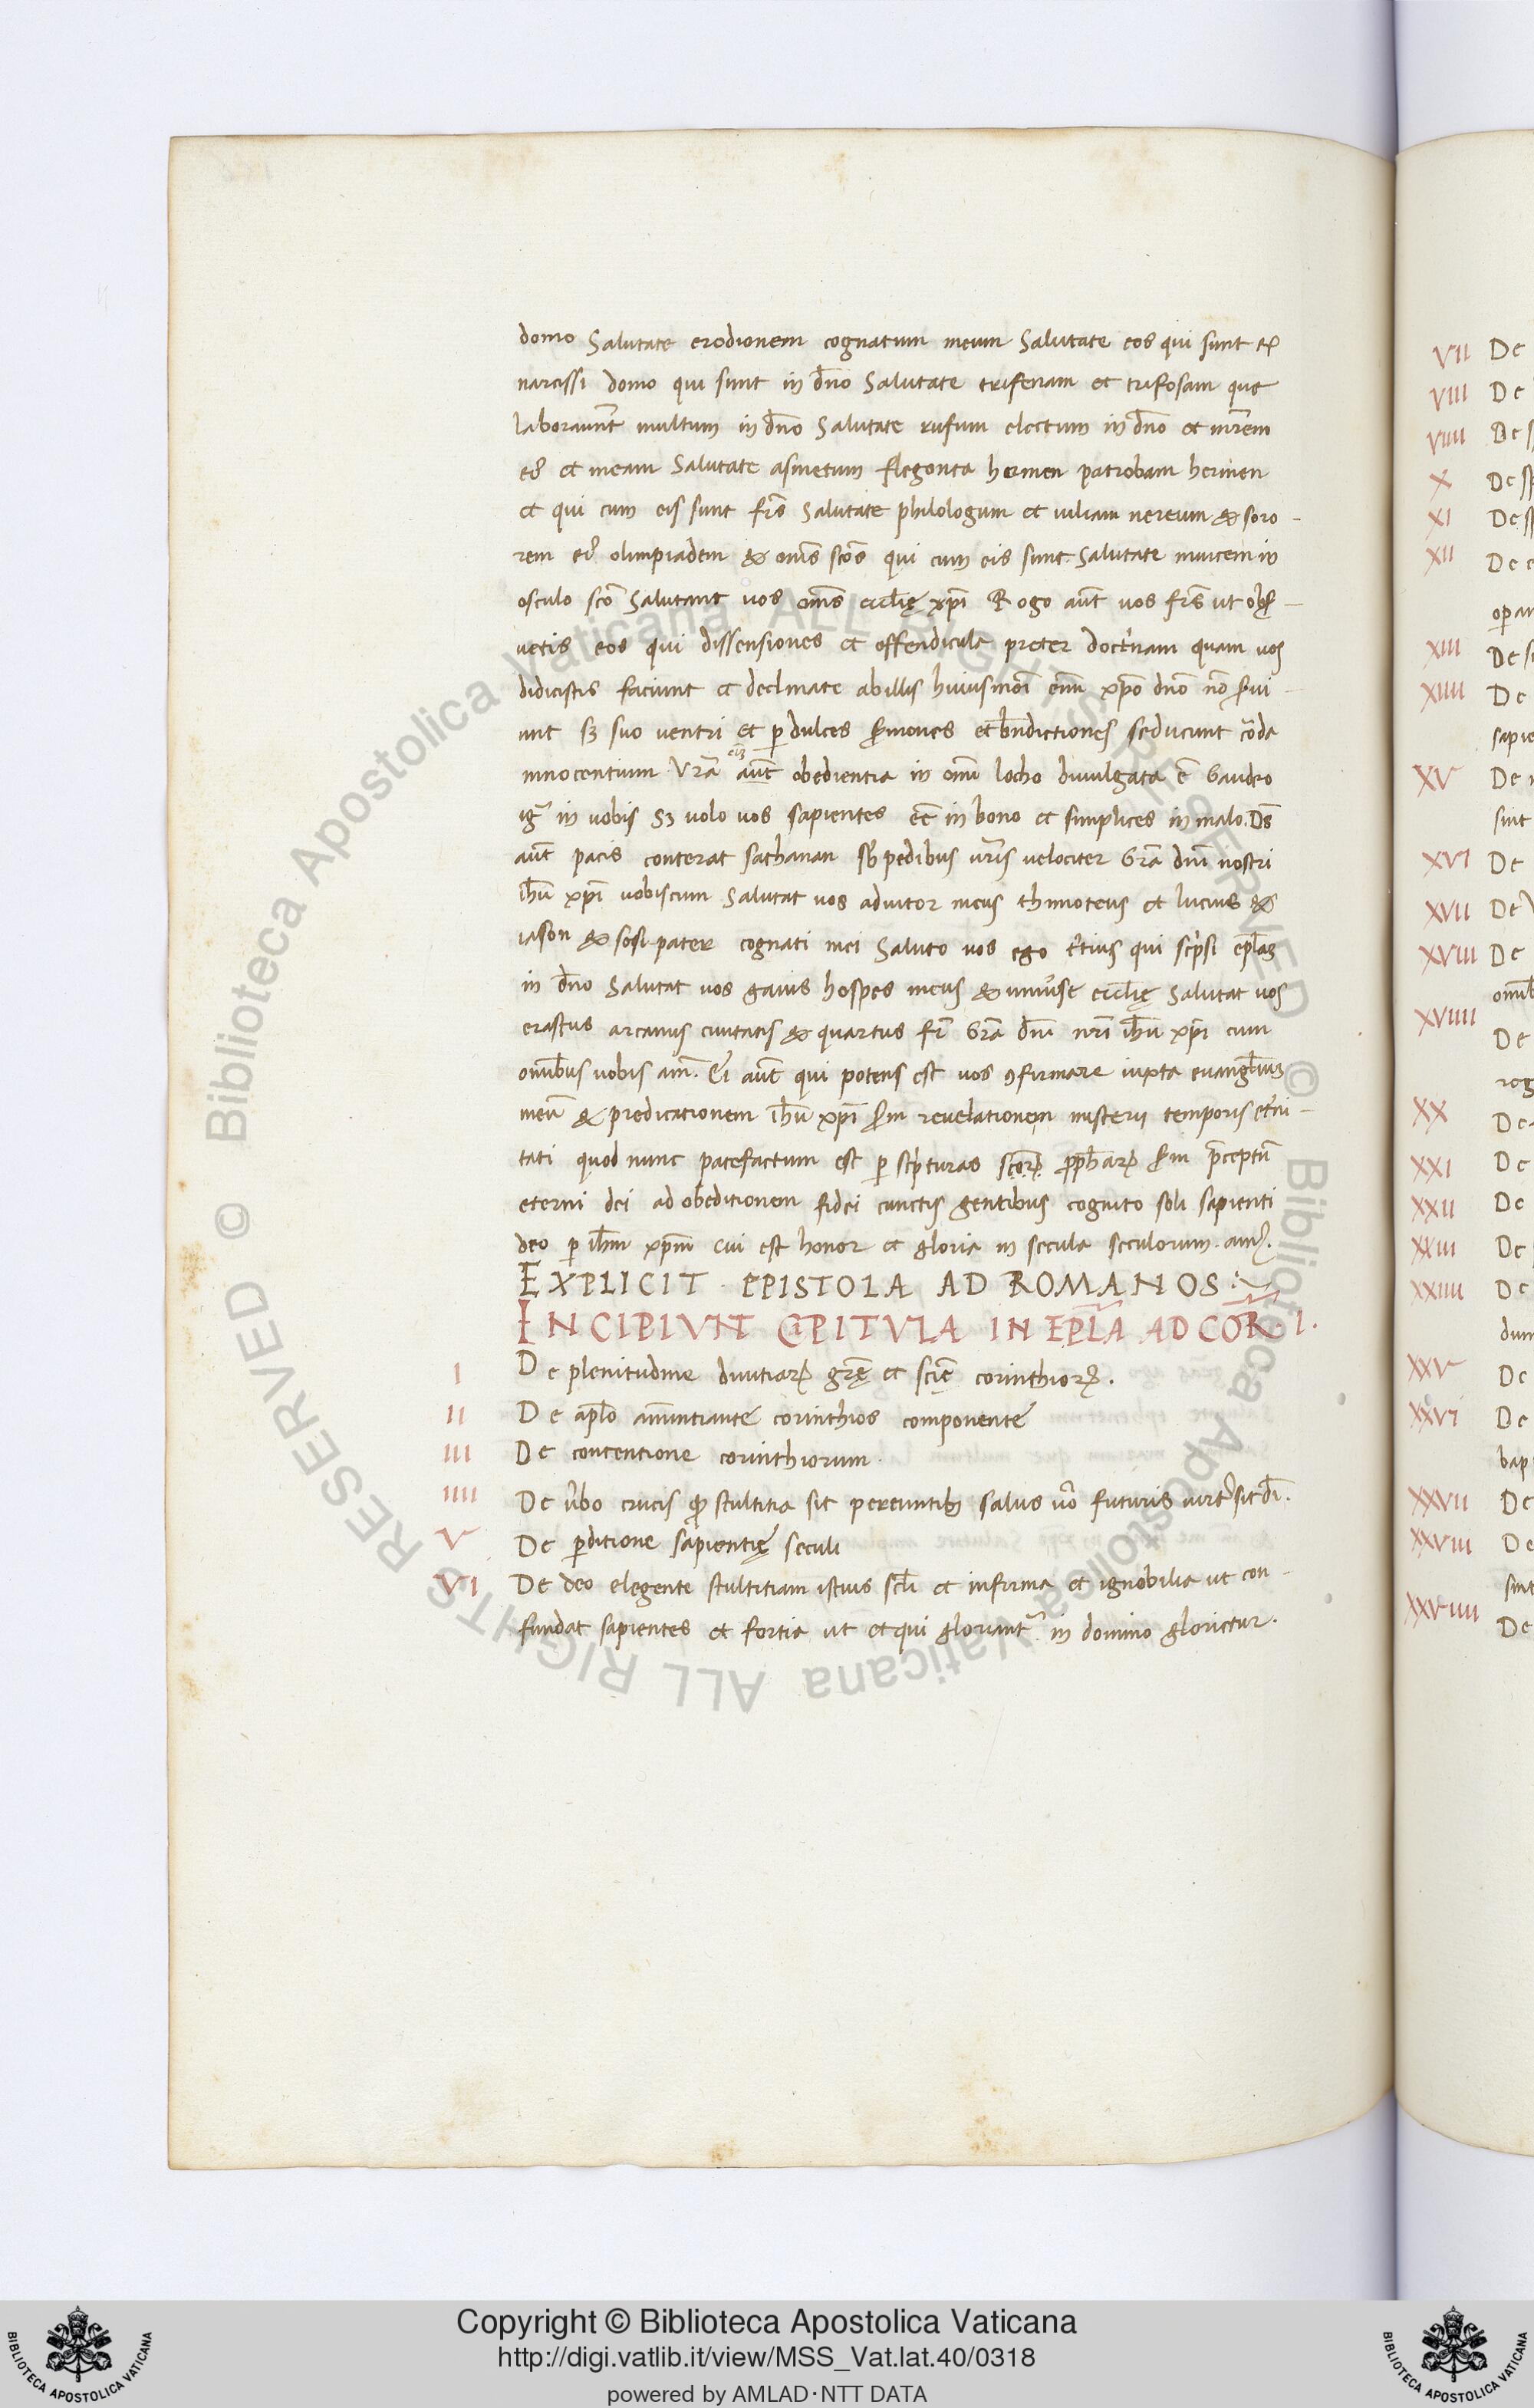 domo Salutate erodionem cognatum meum Salutate eos qui sunt ex
narcissi domo qui sunt in dn̄o Salutate trifenam et trifosam que
laborauer̄t multum in dn̄o Salutate rufum electum in dn̄o et mr̄em
ei᾽ et meam Salutate asinetum flegonta hermen patrobam hermen
et qui cum eis sunt frs̄ Salutate philologum et iuliam nereum & soro-
rem ei᾽ olimpiadem & om̄s scōs qui cum eis sunt Salutate inuicem in
osculo scō Salutant uos om̄s eccl̄ię xp̄i Rogo aūt uos frs̄ ut obẜ-
uetis eos qui dissensiones et offendicula preter doctͥnam quam uos
didicistis faciunt et declinate ab illis huiusmōi enī xp̄o dnō nō ẜui-
unt sȝ suo uentri et ꝑ dulces ẜmones et bn̄dictiones seducunt cōrda
innocentium Vrā eīȝ aūt obedientia in omī locho diuulgata ē Gaudeo
igͬ in uobis Sȝ uolo uos sapientes eē in bono et simplices in malo. Ds̄
aūt pacis conterat sathanan sb̄ pedibus uris̄ velociter Grā dnī nostri
ih̄u xp̄i uobiscum Salutat uos adiutor meus thimoteus et lucius &
iason & sosi pater cognati mei Saluto uos ego t͛tius qui scͥpsi epl̄aȝ
in dn̄o Salutat uos gaius hospes meus & uniu͛se eccl̄ię Salutat uos
erastus arcarius ciuitatis & quartus fr̄ Grā dnī nrī ih̄u xp̄i cum
omib̄us uobis am̄. Ei aūt qui potens est uos ꝯfirmare iuxta euangl̄iuȝ
meū & predicationem ih̄u xp̄i ẜm reuelationem misterii temporis et͛ni-
tati quod nunc patefactum est ꝑ scͥpturas scōrꝝ ꝓph̄arꝝ ẜm p̄ceptū
eterni dei ad obeditionem fidei cunctis gentibus cognito soli sapienti
deo ꝑ ih̄m xp̄m cui est honor et gloria in secula seculorum. am̄.
EXPLICIT EPISTOLA AD ROMANOS:~
INCIPIVNT CAPITVLA IN EPL̄A AD COR̄. I.
I De plenitudine diuitiarꝝ grę̄ et scię̄ corinthiorꝝ.
II De apl̄o annūtiante corinthios componente
III De contentione corinthiorum.
IIII De u͛bo crucis ꝙ stultitia sit pereuntibꝫ saluis uō futuris uirtꝰ sit dī.
V De ꝑditione sapientię seculi
VI De deo elegente stultitiam istius scl̄i et infirma et ignobilia ut con-
fundat sapientes et fortia ut et qui gloriantͬ in domino glorietur.
VII De
VIII De
VIIII De
X De
XI De
XII De
operan
XIII De
XIIII De
sapie
XV De
sint
XVI De
XVII De
XVIII De
XVIIII De
rog
XX De
XXI De
XXII De
XXIII De
XXIIII De
dum
XXV De
XXVI De
bap
XXVII De
XXVIII De
sint
XXVIIII De
© Biblioteca Apostolica Vaticana ALL RIGHTS RESERVED © Biblioteca Apostolica Vaticana ALL RIGHTS RESERVED
Copyright © Biblioteca Apostolica Vaticana
http://digi.vatlib.it/view/MSS_Vat.lat.40/0318
powered by AMLAD·NTT DATA
BIBLIOTECA APOSTOLICA VATICANA
BIBLIOTECA APOSTOLICA VATICANA